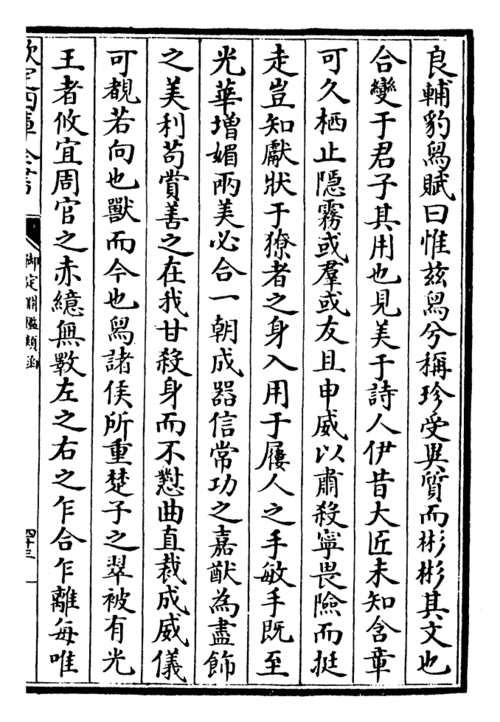 良輔豹舄賦曰惟兹舄兮稱珍受異質而彬彬其文也
合變于君子其用也見美于詩人伊昔大匠未知含章
可久栖止隱霧或羣或友且申威以肅殺寧畏險而挺
走豈知獻狀于獠者之身入用于屨人之手敏手既至
光華增媚兩美必合一朝成器信常功之嘉猷為盡飾
之美利苟賞善之在我甘殺身而不懟曲直裁成威儀
可覩若向也獸而今也舄諸侯所重楚子之翠被有光
王者攸宜周官之赤繶無斁左之右之乍合乍離每唯
欽定四庫全書
御定淵鑑類函
四十三